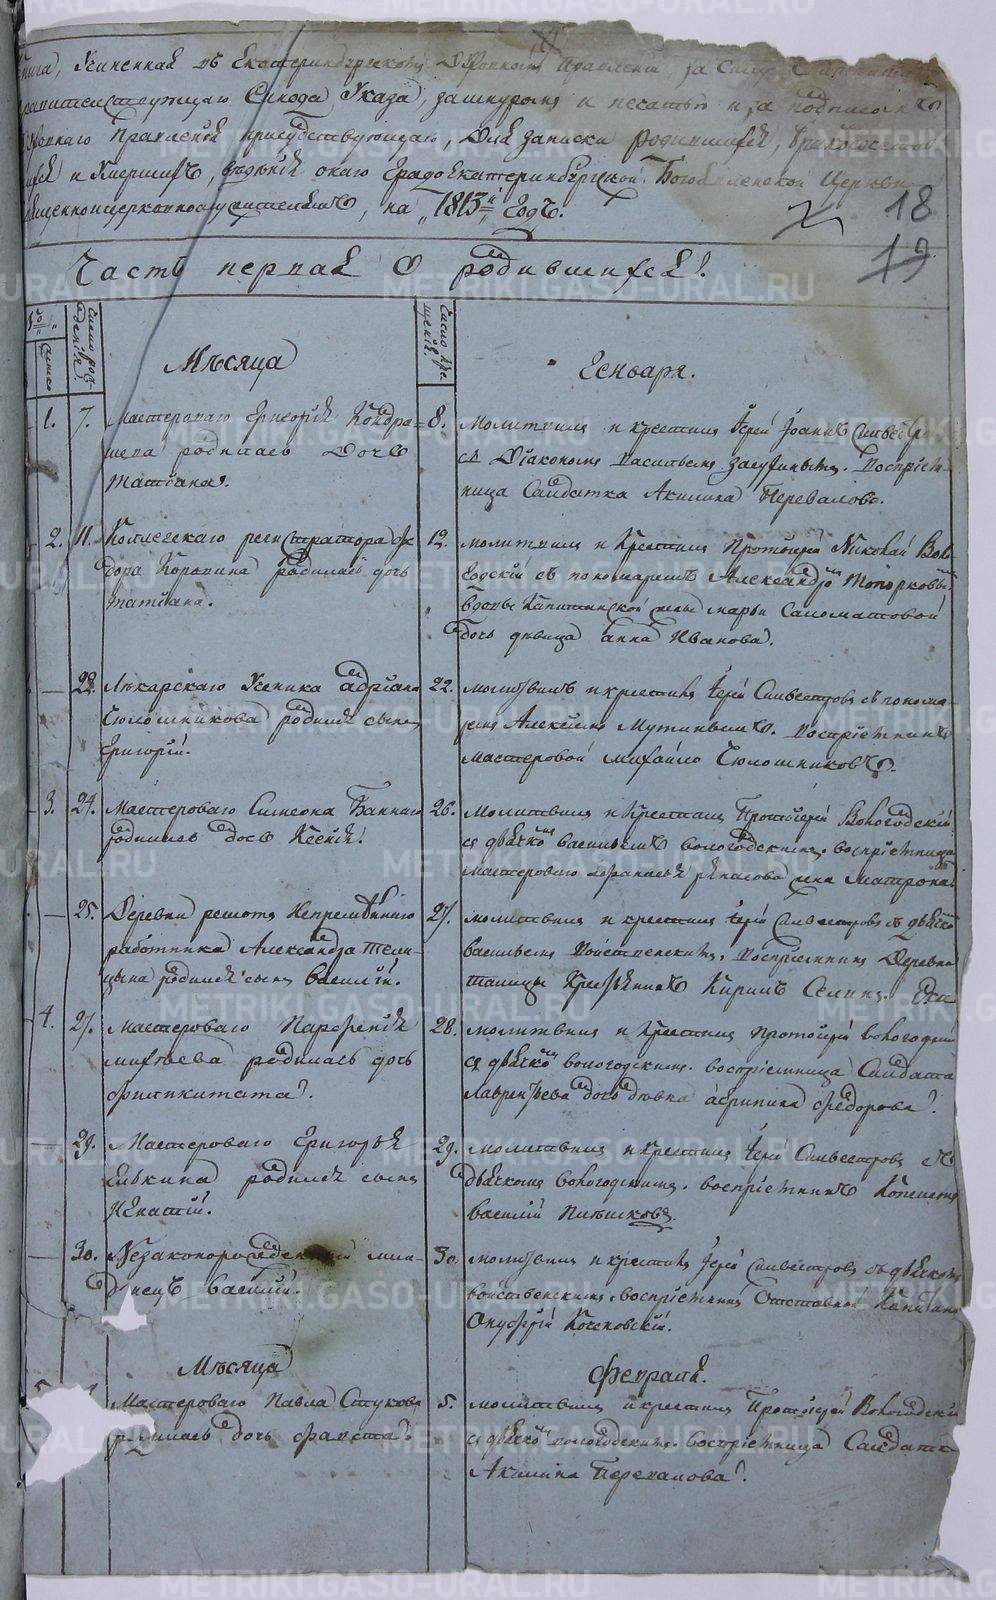 Книга, Учиненная въ Екатеринбургскомъ Духовномъ Правленіи, за Силу С
Правительствующаго Синода Указа, за шнуромъ и печатью и за подписомъ
Духовнаго Правленія присудствующаго, Для записки родившихся, бракосочетав
шихся и Умершихъ, вѣдѣнія онаго Градо Екатеринбургской Богоявленской Церкви
священноцерковнослужителямъ, на 1813й Годъ.
18
19
Часть первая О родившихся.
Число рожденія
Число крещенія
Мѣсяца
Генваря.
1. 7. Мастероваго Григорія Кондра=
шева родилась Дочь
Татіана.
8. молитвилъ и крестилъ Іерей Іоаннъ Сильвестр
съ Діакономъ Васильемъ . Воспріем-
ница Салдатка Акилина Перевалова.
2. 11. Коллегскаго регистратора Фе
дора Корюпина родилась дочь
Татіана.
12. молитвилъ и Крестилъ Протоіерей Николай Воло
годскій съ пономаремъ Александромъ Топорковымъ
Вдовы Капитанской жены марьи Саломатовой
дочь дѣвица анна Иванова.
22. Лѣкарскаго Ученика адріана
Сюлошникова родился сынъ
Григорій.
22. молитвилъ и крестилъ Іерей Сильвестровъ съ понома
ремъ Алексѣемъ Мутинымъ. Воспріемникъ
мастеровой михайло Сюлошниковъ.
3. 24. Мастероваго Симеона Баннаго
родилась дочь Ксенія.
26. Молитвилъ и Крестилъ Протоіерей Вологодскій
съ дьячкомъ васильемъ вологодскимъ. воспріемница
мастероваго афанасья жена Матрона.
25. Деревни решотъ Непремѣннаго
работника Александра Тели-
цына родился сынъ Василій.
27. молитвилъ и крестилъ Іерей Сильвестровъ съ дьячкомъ
васильемъ Воиственскимъ. Воспріемникъ Деревни
талицы Крестьянинъ Кирилъ Селинъ.
4. 27. Мастероваго Парфенія
михѣева родилась дочь
Филикитата.
28. молитвилъ и крестилъ протоіерей вологодскій
съ дьячкомъ вологодскимъ. воспріемница Салдата
лаврентьева дочь дѣвка агрипина Федорова.
29. Мастероваго Григорья
Елькина родился сынъ
Игнатій.
29. молитвилъ и крестилъ Іерей Сильвестровъ съ
дьячкомъ вологодскимъ. воспріемникъ Копеистъ
василій Пьянковъ.
30. Незаконорожденный мла-
денецъ василій.
30. молитвилъ и крестилъ Іерей Сильвестровъ съ дьячкомъ
воиственскимъ. воспріемникъ Отставной Капитанъ
Онуфрій Коченовскій.
Мѣсяца
Февраля.
Мастероваго Павла Стукова
родилась дочь Фауста.
5. молитвилъ и крестилъ Протоіерей Вологодскій
съ дьячкомъ вологодскимъ. воспріемница Салдатка
Акилина Перевалова.
METRIKI.GASO-URAL.RU